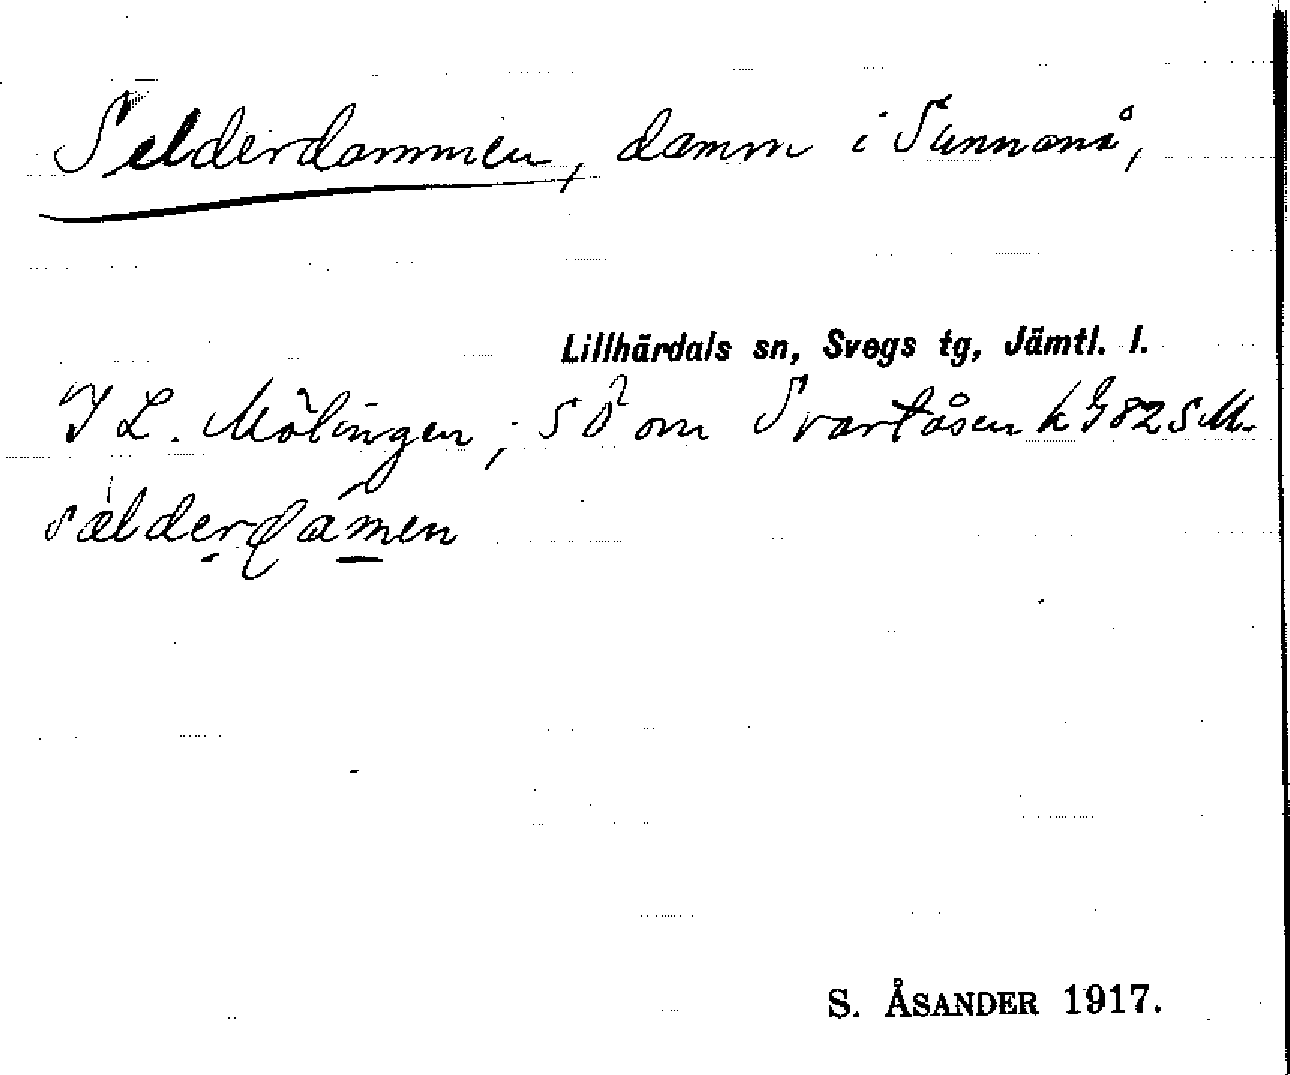 Selderdammen, damm i Sunnanå,
Lillhärdals sn, Svegs tg, Jämtl. l.
I L. Mölingen; SÖ om Svartåsen k G 82 SM.
sælderdamen
S. ÅSANDER 1917.